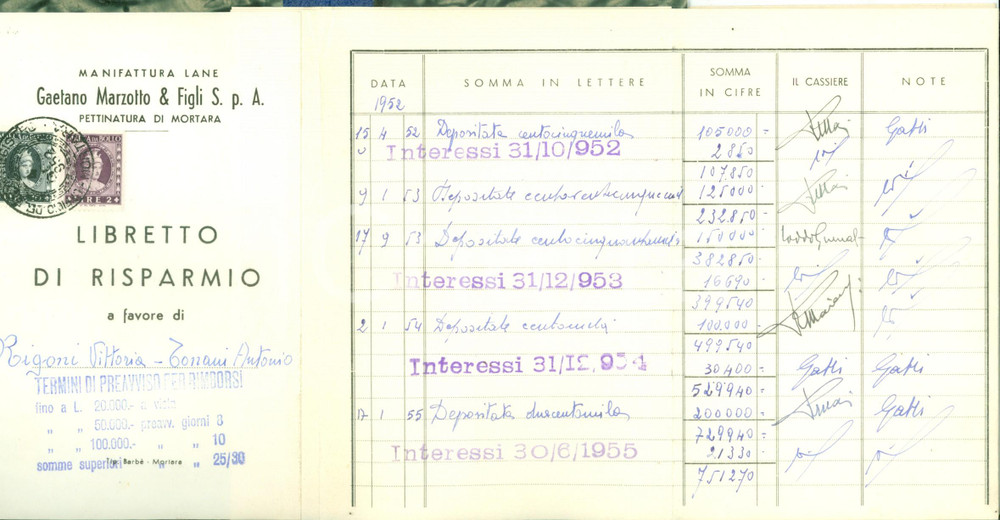 MANIFATTURA LANE
Gaetano Marzotto & Figli S. p. A.
PETTINATURA DI MORTARA
LIRE 2
LIBRETTO
DI RISPARMIO
a favore di
Rigoni Vittoria - Tonani Antonio
TERMINI DI PREAVVISO PER RIMBORSI
fino a L. 20.000.- a vista
" " 50.000.- preavv. giorni 8
" " 100.000.- " " 10
somme superiori " " 25/30
Tip. Barbè - Mortara
DATA SOMMA IN LETTERE SOMMA IN CIFRE IL CASSIERE NOTE
1952
15 4 52 Depositata centocinquemila 105000 = Gatti
Interessi 31/10/952 2850
107.850
9 1 53 Depositate 125000
232.850
17 9 53 Depositate 150000
382.850
Interessi 31/12/953 16690
399.540
2 1 54 Depositate centomila 100.000
499540
Interessi 31/12.954 30400 = Gatti Gatti
529940
17 1 55 Depositata duecentomila 200000 = Gatti
729940
Interessi 30/6/1955 21330
751270